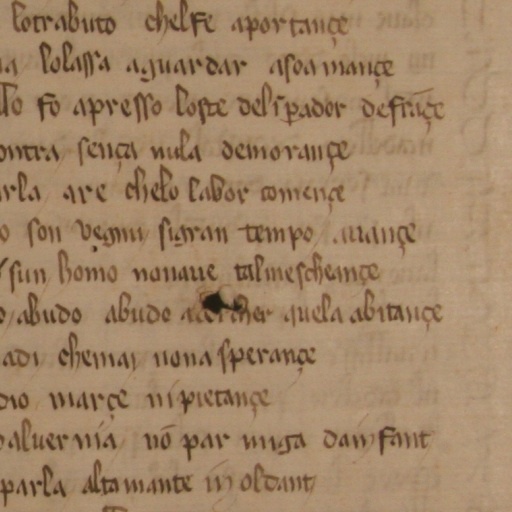 lotrabuto chelfe aportançe
lolassa aguardar asoa mançe
fo apresso loste del īpador defrāçe
ontra sença nula demorançe
rla are chelo labor començe
son vegnu sigran tempo avançe
sun homo nonave talmescheançe
abudo abude quela abitançe
adi chemai nona sperançe
dio març̧e ni pietançe
alvernia nō par miga
parla altamante in oldant